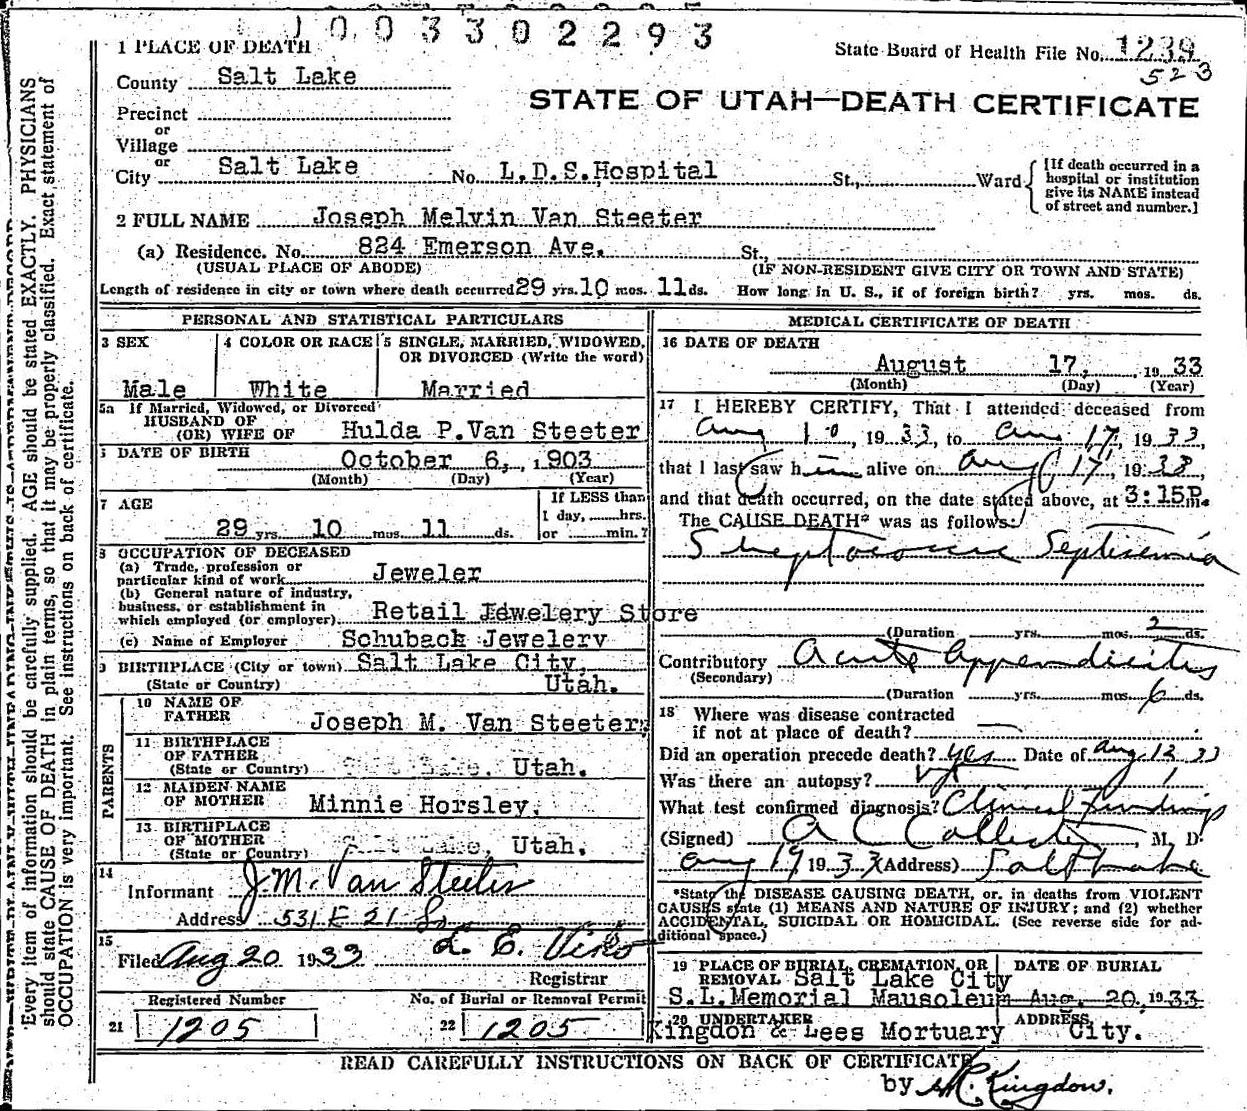 1003302293
1 PLACE OF DEATH
State Board of Health File No. 1239
523
County Salt Lake
STATE OF UTAH—DEATH CERTIFICATE
Precinct
or
Village
or
City Salt Lake No. L.D.S.Hospital St., Ward
[If death occurred in a hospital or institution give its NAME instead of street and number.]
2 FULL NAME Joseph Melvin Van Steeter
(a) Residence. No. 824 Emerson Ave. St.,
(USUAL PLACE OF ABODE) (IF NON-RESIDENT GIVE CITY OR TOWN AND STATE)
Length of residence in city or town where death occurred 29 yrs. 10 mos. 11 ds. How long in U. S., if of foreign birth? yrs. mos. ds.
PERSONAL AND STATISTICAL PARTICULARS
3 SEX 4 COLOR OR RACE 5 SINGLE, MARRIED, WIDOWED, OR DIVORCED (Write the word)
Male White Married
5a If Married, Widowed, or Divorced
HUSBAND OF
(OR) WIFE OF Hulda P.Van Steeter
6 DATE OF BIRTH October 6, 1903
(Month) (Day) (Year)
7 AGE
If LESS than
1 day, hrs.
29 yrs. 10 mos. 11 ds. or min.?
8 OCCUPATION OF DECEASED
(a) Trade, profession or
particular kind of work Jeweler
(b) General nature of industry,
business, or establishment in
which employed (or employer) Retail Jewelery Store
(c) Name of Employer Schuback Jewelery
9 BIRTHPLACE (City or town) Salt Lake City,
(State or Country) Utah.
PARENTS
10 NAME OF
FATHER Joseph M. Van Steeter,
11 BIRTHPLACE
OF FATHER
(State or Country) Salt Lake, Utah.
12 MAIDEN NAME
OF MOTHER Minnie Horsley,
13 BIRTHPLACE
OF MOTHER
(State or Country) Salt Lake, Utah.
14
Informant J.M. Van Steeter
Address 531 E 21 So
15
Filed Aug 20 1933 L. E. Viko
Registrar
Registered Number No. of Burial or Removal Permit
21 1205 22 1205
MEDICAL CERTIFICATE OF DEATH
16 DATE OF DEATH
August 17, 1933
(Month) (Day) (Year)
17 I HEREBY CERTIFY, That I attended deceased from
Aug 10, 1933, to Aug 17, 1933,
that I last saw him alive on Aug 17, 1933
and that death occurred, on the date stated above, at 3:15P.m.
The CAUSE DEATH* was as follows:
Streptococcic Septisemia
(Duration yrs. mos. 2 ds.
Contributory Acute Appendicitis
(Secondary)
(Duration yrs. mos. 6 ds.
18 Where was disease contracted
if not at place of death?
Did an operation precede death? yes Date of Aug 12 33
Was there an autopsy?
What test confirmed diagnosis? Clinical Findings
(Signed) A C Callister, M. D.
Aug 19 1933 (Address) Salt Lake
*State the DISEASE CAUSING DEATH, or, in deaths from VIOLENT
CAUSES state (1) MEANS AND NATURE OF INJURY; and (2) whether
ACCIDENTAL, SUICIDAL OR HOMICIDAL. (See reverse side for ad-
ditional space.)
19 PLACE OF BURIAL, CREMATION, OR DATE OF BURIAL
REMOVAL Salt Lake City
S.L.Memorial Mausoleum Aug. 20, 1933
20 UNDERTAKER ADDRESS
Kingdon & Lees Mortuary City.
READ CAREFULLY INSTRUCTIONS ON BACK OF CERTIFICATE
by Kingdon.
Every item of information should be carefully supplied. AGE should be stated EXACTLY. PHYSICIANS
should state CAUSE OF DEATH in plain terms, so that it may be properly classified. Exact statement of
OCCUPATION is very important. See instructions on back of certificate.